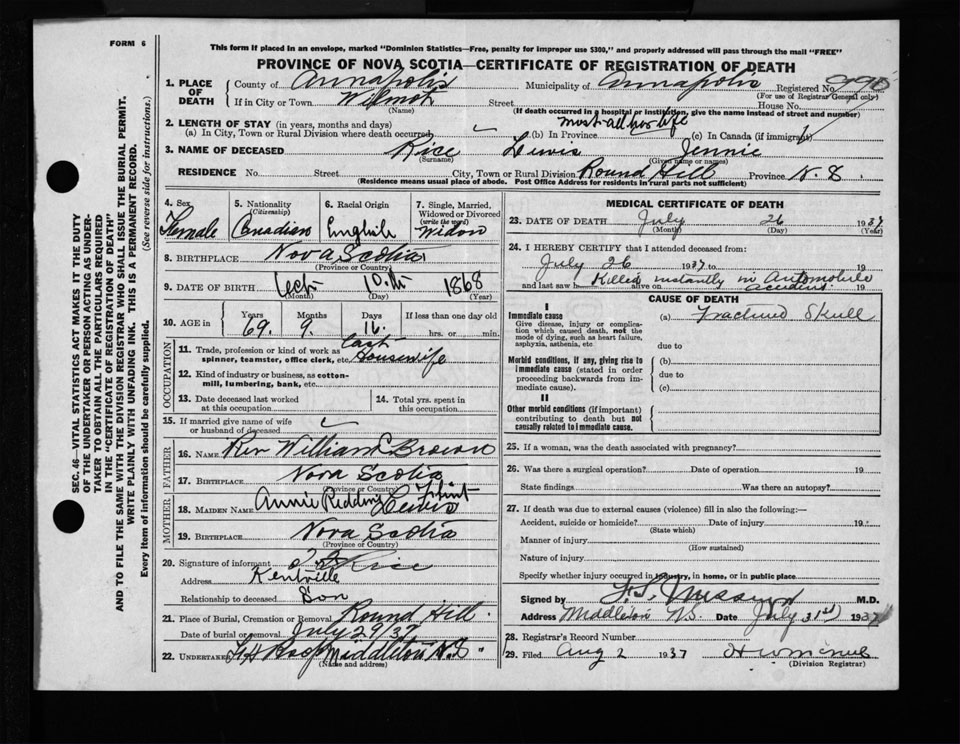 FORM 6
This form if placed in an envelope, marked "Dominion Statistics—Free, penalty for improper use $300," and properly addressed will pass through the mail "FREE"
PROVINCE OF NOVA SCOTIA—CERTIFICATE OF REGISTRATION OF DEATH
1. PLACE OF DEATH
County of Annapolis Municipality of Annapolis Registered No.
(For use of Registrar General only)
If in City or Town Wilmot Street House No.
(Name) (If death occurred in a hospital or institution, give the name instead of street and number)
2. LENGTH OF STAY (in years, months and days) most all her life
(a) In City, Town or Rural Division where death occurred (b) In Province (c) In Canada (if immigrant)
3. NAME OF DECEASED Rice Lewis Jennie
(Surname) (Given name or names)
RESIDENCE No. Street City, Town or Rural Division Round Hill Province N.S.
(Residence means usual place of abode. Post Office Address for residents in rural parts not sufficient)
4. Sex Female
5. Nationality (Citizenship) Canadian
6. Racial Origin English
7. Single, Married, Widowed or Divorced (write the word) Widow
8. BIRTHPLACE Nova Scotia
(Province or Country)
9. DATE OF BIRTH 10th 1868
(Month) (Day) (Year)
10. AGE in Years Months Days If less than one day old
69. 9. 16. hrs. or min.
OCCUPATION
11. Trade, profession or kind of work as spinner, teamster, office clerk, etc. Housewife
12. Kind of industry or business, as cotton-mill, lumbering, bank, etc.
13. Date deceased last worked at this occupation
14. Total yrs. spent in this occupation
15. If married give name of wife or husband of deceased
FATHER
16. NAME Rev William Brown
17. BIRTHPLACE Nova Scotia
(Province or Country)
MOTHER
18. MAIDEN NAME Annie Lewis
19. BIRTHPLACE Nova Scotia
(Province or Country)
20. Signature of informant Rice
Address Kentville
Relationship to deceased Son
21. Place of Burial, Cremation or Removal Round Hill
Date of burial or removal July 29/37
22. UNDERTAKER Middleton N.S.
(Name and address)
MEDICAL CERTIFICATE OF DEATH
23. DATE OF DEATH July 26 1937
(Month) (Day) (Year)
24. I HEREBY CERTIFY that I attended deceased from:
July 26 1937 to 19
and last saw h alive on 19
Killed instantly in Automobile accident.
CAUSE OF DEATH
I
Immediate cause (a) Fractured Skull
Give disease, injury or complication which caused death, not the mode of dying, such as heart failure, asphyxia, asthenia, etc
due to
Morbid conditions, if any, giving rise to immediate cause (stated in order proceeding backwards from immediate cause).
(b)
due to
(c)
II
Other morbid conditions (if important) contributing to death but not causally related to immediate cause.
25. If a woman, was the death associated with pregnancy?
26. Was there a surgical operation? Date of operation 19
State findings Was there an autopsy?
27. If death was due to external causes (violence) fill in also the following:—
Accident, suicide or homicide? Date of injury 19
(State which)
Manner of injury
(How sustained)
Nature of injury
Specify whether injury occurred in industry, in home, or in public place
Signed by M.D.
Address Middleton N.S. Date July 31st 1937
28. Registrar's Record Number
29. Filed Aug 2 1937
(Division Registrar)
SEC. 46—VITAL STATISTICS ACT MAKES IT THE DUTY
OF THE UNDERTAKER OR PERSON ACTING AS UNDER-
TAKER TO OBTAIN ALL THE PARTICULARS REQUIRED
IN THE "CERTIFICATE OF REGISTRATION OF DEATH"
AND TO FILE THE SAME WITH THE DIVISION REGISTRAR WHO SHALL ISSUE THE BURIAL PERMIT.
WRITE PLAINLY WITH UNFADING INK. THIS IS A PERMANENT RECORD.
Every item of information should be carefully supplied. (See reverse side for instructions.)